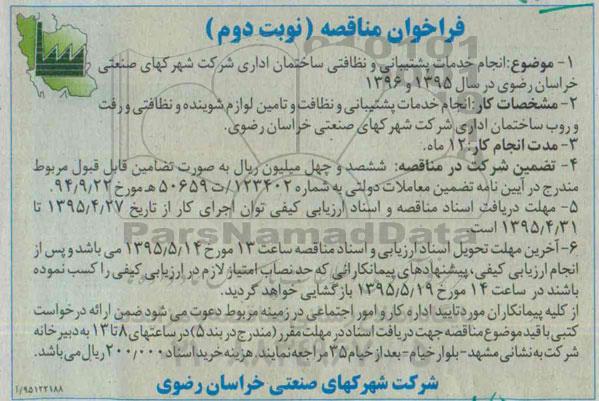 فراخوان مناقصه (نوبت دوم)
۱- موضوع: انجام خدمات پشتیبانی و نظافتی ساختمان اداری شرکت شهرکهای صنعتی
خراسان رضوی در سال ۱۳۹۵ و ۱۳۹۶
۲- مشخصات کار: انجام خدمات پشتیبانی و نظافت و تامین لوازم شوینده و نظافتی و رفت
و روب ساختمان اداری شرکت شهرکهای صنعتی خراسان رضوی.
۳- مدت انجام کار: ۱۲ ماه.
۴- تضمین شرکت در مناقصه: ششصد و چهل میلیون ریال به صورت تضامین قابل قبول مربوط
مندرج در آیین نامه تضمین معاملات دولتی به شماره ۱۲۳۴۰۲/ت ۵۰۶۵۹ هـ مورخ ۹۴/۹/۲۲.
۵- مهلت دریافت اسناد مناقصه و اسناد ارزیابی کیفی توان اجرای کار از تاریخ ۱۳۹۵/۴/۲۷ تا
۱۳۹۵/۴/۳۱ است.
۶- آخرین مهلت تحویل اسناد ارزیابی و اسناد مناقصه ساعت ۱۳ مورخ ۱۳۹۵/۵/۱۴ می باشد و پس از
انجام ارزیابی کیفی، پیشنهادهای پیمانکارانی که حد نصاب امتیاز لازم در ارزیابی کیفی را کسب نموده
باشند در ساعت ۱۴ مورخ ۱۳۹۵/۵/۱۹ بازگشایی خواهد گردید.
از کلیه پیمانکاران مورد تایید اداره کار و امور اجتماعی در زمینه مربوط دعوت می شود ضمن ارائه درخواست
کتبی با قید موضوع مناقصه جهت دریافت اسناد در مهلت مقرر (مندرج در بند ۵) در ساعتهای ۸ تا ۱۳ به دبیرخانه
شرکت به نشانی مشهد- بلوار خیام- بعد از خیام ۳۵ مراجعه نمایند. هزینه خرید اسناد ۲۰۰/۰۰۰ ریال می باشد.
شرکت شهرکهای صنعتی خراسان رضوی
۹۵۱۲۲۱۸۸/آ
ParsNamadData